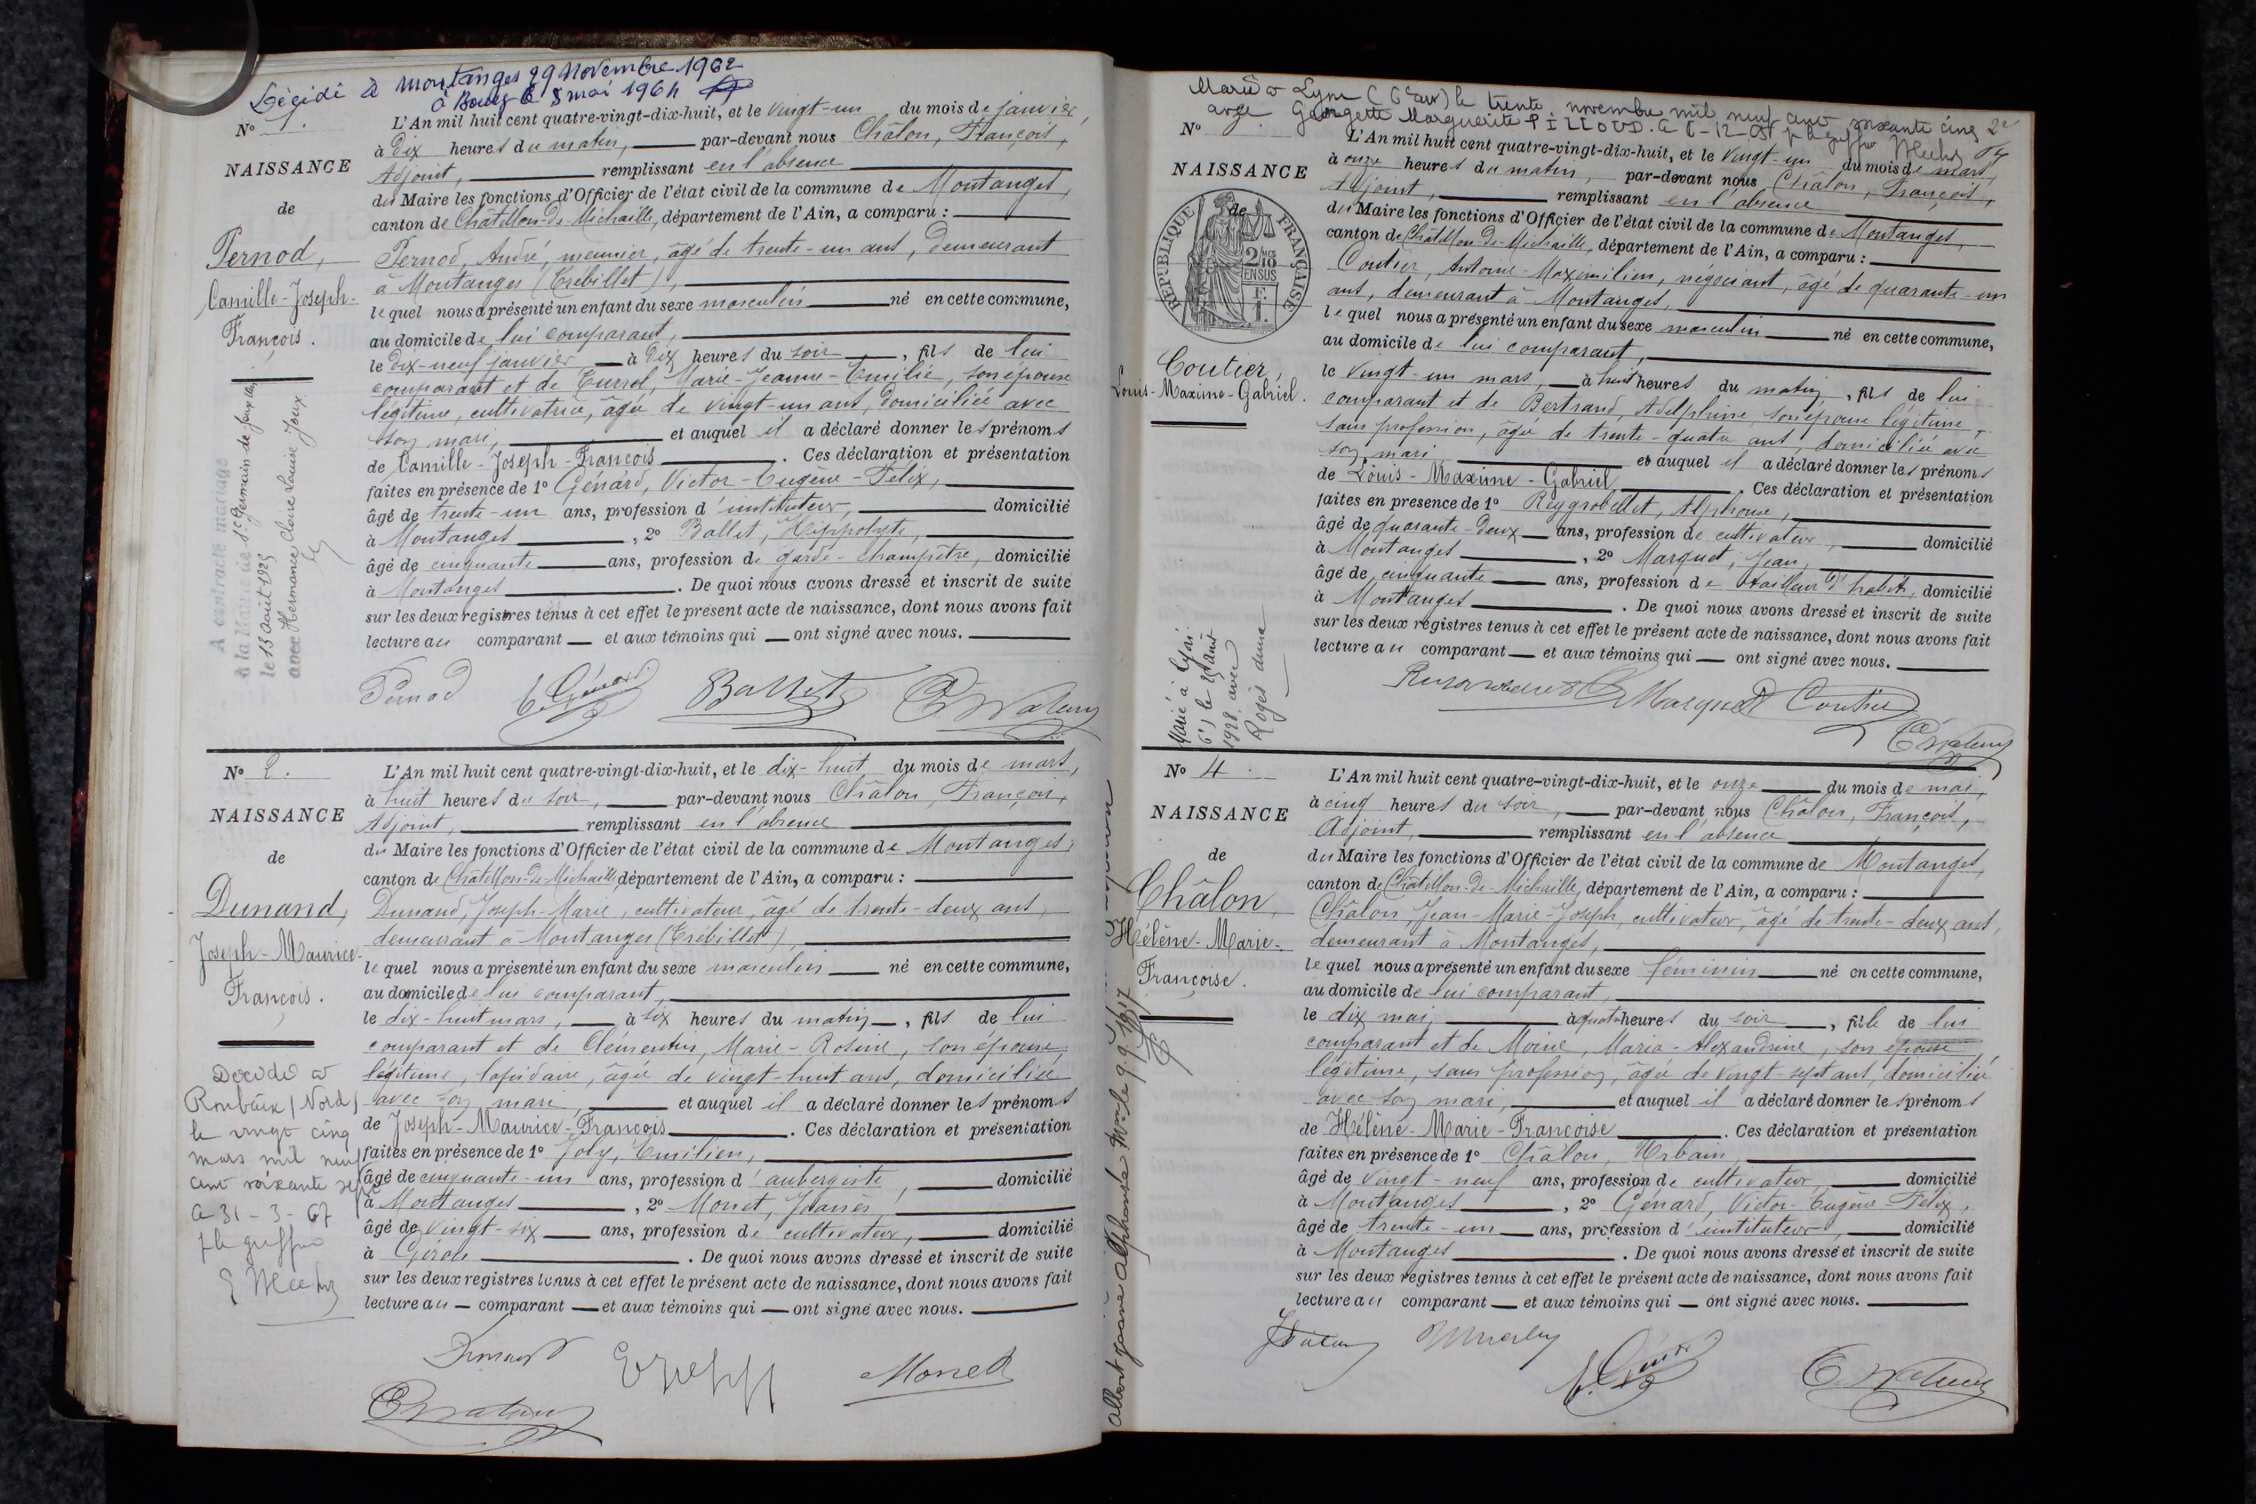 Décédé à Montanges 29 Novembre 1962
à Bourg le 8 mai 1964
Nº 1.
NAISSANCE
de
Pernod,
Camille-Joseph-
François.
A contracté mariage
à la Mairie de St Germain de Joux
le 13 août 1925
avec Hermance Claire Louise Joux
L'An mil huit cent quatre-vingt-dix-huit, et le vingt-un du mois de janvier,
à dix heures du matin, par-devant nous Châlon, François,
Adjoint, remplissant en l'absence
du Maire les fonctions d'Officier de l'état civil de la commune de Montanges,
canton de Châtillon-de-Michaille, département de l'Ain, a comparu :
Pernod, André, meunier, âgé de trente-un ans, demeurant
à Montanges (Trébillet),
lequel nous a présenté un enfant du sexe masculin né en cette commune,
au domicile de lui comparant,
le dix-neuf janvier à dix heures du soir, fils de lui
comparant et de Turrel, Marie-Jeanne-Emilie, son épouse
légitime, cultivatrice, âgée de vingt-un ans, domiciliée avec
son mari, et auquel il a déclaré donner les prénoms
de Camille-Joseph-François. Ces déclaration et présentation
faites en présence de 1º Génard, Victor-Eugène-Félix,
âgé de trente-un ans, profession d'instituteur, domicilié
à Montanges, 2º Ballet, Hippolyte,
âgé de cinquante ans, profession de garde-champêtre, domicilié
à Montanges. De quoi nous avons dressé et inscrit de suite
sur les deux registres tenus à cet effet le présent acte de naissance, dont nous avons fait
lecture au comparant et aux témoins qui ont signé avec nous.
Pernod Génard Ballet
Nº 2.
NAISSANCE
de
Dunand,
Joseph-Maurice-
François.
Décédé à
Roubaix (Nord)
le vingt cinq
mars mil neuf
cent soixante sept
a 31-3-67
L'An mil huit cent quatre-vingt-dix-huit, et le dix-huit du mois de mars,
à huit heures du soir, par-devant nous Châlon, François,
Adjoint, remplissant en l'absence
du Maire les fonctions d'Officier de l'état civil de la commune de Montanges,
canton de Châtillon-de-Michaille, département de l'Ain, a comparu :
Dunand, Joseph-Marie, cultivateur, âgé de trente-deux ans,
demeurant à Montanges (Trébillet),
lequel nous a présenté un enfant du sexe masculin né en cette commune,
au domicile de lui comparant,
le dix-huit mars, à six heures du matin, fils de lui
comparant et de Clémentin, Marie-Rosine, son épouse
légitime, lapidaire, âgée de vingt-huit ans, domiciliée
avec son mari, et auquel il a déclaré donner les prénoms
de Joseph-Maurice-François. Ces déclaration et présentation
faites en présence de 1º Joly, Emilien,
âgé de cinquante-un ans, profession d'aubergiste, domicilié
à Montanges, 2º Monet, Joanès,
âgé de vingt-six ans, profession de cultivateur, domicilié
à Giron. De quoi nous avons dressé et inscrit de suite
sur les deux registres tenus à cet effet le présent acte de naissance, dont nous avons fait
lecture au comparant et aux témoins qui ont signé avec nous.
Dunand Monet
Marié à Lyon (6e arr) le trente novembre mil neuf cent soixante cinq
avec Georgette Marguerite PILLOUD. a 6-12-65
Nº
NAISSANCE
de
RÉPUBLIQUE FRANÇAISE
Coutier,
Louis-Maxime-Gabriel.
Marié à Lyon
6e, le août
1928 avec
L'An mil huit cent quatre-vingt-dix-huit, et le vingt-un du mois de mars,
à onze heures du matin, par-devant nous Châlon, François,
Adjoint, remplissant en l'absence
du Maire les fonctions d'Officier de l'état civil de la commune de Montanges,
canton de Châtillon-de-Michaille, département de l'Ain, a comparu :
Coutier, Antoine-Maximilien, négociant, âgé de quarante-un
ans, demeurant à Montanges,
lequel nous a présenté un enfant du sexe masculin né en cette commune,
au domicile de lui comparant,
le vingt-un mars, à huit heures du matin, fils de lui
comparant et de Bertrand, Adelphine, son épouse légitime,
sans profession, âgée de trente-quatre ans, domiciliée avec
son mari et auquel il a déclaré donner les prénoms
de Louis-Maxime-Gabriel. Ces déclaration et présentation
faites en présence de 1º Reygrobellet, Alphonse,
âgé de quarante-deux ans, profession de cultivateur, domicilié
à Montanges, 2º Marquet, Jean,
âgé de cinquante ans, profession de tailleur d'habits, domicilié
à Montanges. De quoi nous avons dressé et inscrit de suite
sur les deux registres tenus à cet effet le présent acte de naissance, dont nous avons fait
lecture au comparant et aux témoins qui ont signé avec nous.
Marquet Coutier
Nº 4.
NAISSANCE
de
Châlon,
Hélène-Marie-
Françoise.
L'An mil huit cent quatre-vingt-dix-huit, et le onze du mois de mai,
à cinq heures du soir, par-devant nous Châlon, François,
Adjoint, remplissant en l'absence
du Maire les fonctions d'Officier de l'état civil de la commune de Montanges,
canton de Châtillon-de-Michaille, département de l'Ain, a comparu :
Châlon, Jean-Marie-Joseph, cultivateur, âgé de trente-deux ans,
demeurant à Montanges,
lequel nous a présenté un enfant du sexe féminin né en cette commune,
au domicile de lui comparant,
le dix mai, à quatre heures du soir, fille de lui
comparant et de Moine, Maria-Alexandrine, son épouse
légitime, sans profession, âgée de vingt-sept ans, domiciliée
avec son mari, et auquel il a déclaré donner les prénoms
de Hélène-Marie-Françoise. Ces déclaration et présentation
faites en présence de 1º Châlon, Urbain,
âgé de vingt-neuf ans, profession de cultivateur, domicilié
à Montanges, 2º Génard, Victor-Eugène-Félix,
âgé de trente-un ans, profession d'instituteur, domicilié
à Montanges. De quoi nous avons dressé et inscrit de suite
sur les deux registres tenus à cet effet le présent acte de naissance, dont nous avons fait
lecture au comparant et aux témoins qui ont signé avec nous.
Génard